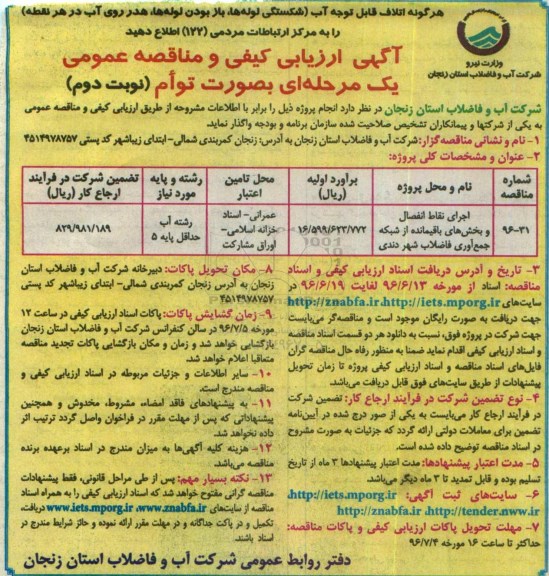 هرگونه اتلاف قابل توجه آب (شکستگی لوله‌ها، باز بودن لوله‌ها، هدر روی آب در هر نقطه)
را به مرکز ارتباطات مردمی (۱۲۲) اطلاع دهید
وزارت نیرو
شرکت آب و فاضلاب استان زنجان
آگهی ارزیابی کیفی و مناقصه عمومی
یک مرحله‌ای بصورت توأم (نوبت دوم)
شرکت آب و فاضلاب استان زنجان در نظر دارد انجام پروژه ذیل را برابر با اطلاعات مشروحه از طریق ارزیابی کیفی و مناقصه عمومی
به یکی از شرکتها و پیمانکاران تشخیص صلاحیت شده سازمان برنامه و بودجه واگذار نماید.
۱- نام و نشانی مناقصه‌گزار: شرکت آب و فاضلاب استان زنجان به آدرس: زنجان کمربندی شمالی- ابتدای زیباشهر کد پستی ۴۵۱۴۹۷۸۷۵۷
۲- عنوان و مشخصات کلی پروژه:
شماره مناقصه
نام و محل پروژه
برآورد اولیه (ریال)
محل تامین اعتبار
رشته و پایه مورد نیاز
تضمین شرکت در فرآیند ارجاع کار (ریال)
۹۶-۳۱
اجرای نقاط انفصال و بخش‌های باقیمانده از شبکه جمع‌آوری فاضلاب شهر دندی
۱۶/۵۹۹/۶۲۳/۷۷۲
عمرانی- اسناد خزانه اسلامی- اوراق مشارکت
رشته آب حداقل پایه ۵
۸۲۹/۹۸۱/۱۸۹
۳- تاریخ و آدرس دریافت اسناد ارزیابی کیفی و اسناد
مناقصه: اسناد از مورخه ۹۶/۶/۱۳ لغایت ۹۶/۶/۱۹ در
سایت‌های http://iets.mporg.ir، http://znabfa.ir
جهت دریافت به صورت رایگان موجود است و مناقصه‌گر می‌بایست
جهت شرکت در پروژه فوق، نسبت به دانلود هر دو قسمت اسناد مناقصه
و اسناد ارزیابی کیفی اقدام نماید ضمنا به منظور رفاه حال مناقصه گران
فایل‌های اسناد مناقصه و اسناد ارزیابی کیفی پروژه تا زمان تحویل
پیشنهادات از طریق سایت‌های فوق قابل دریافت می‌باشد.
۴- نوع تضمین شرکت در فرآیند ارجاع کار: تضمین شرکت
در فرآیند ارجاع کار می‌بایست به یکی از صور درج شده در آیین‌نامه
تضمین برای معاملات دولتی ارائه گردد که جزئیات به صورت مشروح
در اسناد مناقصه توضیح داده شده است.
۵- مدت اعتبار پیشنهادها: مدت اعتبار پیشنهادها ۳ ماه از تاریخ
تسلیم بوده و قابل تمدید تا ۳ ماه دیگر می‌باشد.
۶- سایت‌های ثبت آگهی: http://iets.mporg.ir،
http://znabfa.ir ،http://tender.nww.ir
۷- مهلت تحویل پاکات ارزیابی کیفی و پاکات مناقصه:
حداکثر تا ساعت ۱۶ مورخه ۹۶/۷/۴
۸- مکان تحویل پاکات: دبیرخانه شرکت آب و فاضلاب استان
زنجان به آدرس زنجان کمربندی شمالی- ابتدای زیباشهر کد پستی
۴۵۱۴۹۷۸۷۵۷
۹- زمان گشایش پاکات: پاکات اسناد ارزیابی کیفی در ساعت ۱۲
مورخه ۹۶/۷/۵ در سالن کنفرانس شرکت آب و فاضلاب استان زنجان
بازگشایی خواهد شد و زمان و مکان بازگشایی پاکات تجدید مناقصه
متعاقبا اعلام خواهد شد.
۱۰- سایر اطلاعات و جزئیات مربوطه در اسناد ارزیابی کیفی و
مناقصه مندرج است.
۱۱- به پیشنهادهای فاقد امضاء، مشروط، مخدوش و همچنین
پیشنهاداتی که پس از مهلت مقرر در فراخوان واصل گردد ترتیب اثر
داده نخواهد شد.
۱۲- هزینه کلیه آگهی‌ها به میزان مندرج در اسناد برعهده برنده
مناقصه می‌باشد.
۱۳- نکته بسیار مهم: پس از طی مراحل قانونی، فقط پیشنهادات
مناقصه گرانی مفتوح خواهد شد که اسناد ارزیابی کیفی را به همراه اسناد
مناقصه از سایت‌های www.znabfa.ir، www.iets.mporg.ir دریافت،
تکمیل و در پاکت جداگانه و در مهلت مقرر ارائه نموده و حائز شرایط مندرج در
اسناد باشند.
دفتر روابط عمومی شرکت آب و فاضلاب استان زنجان